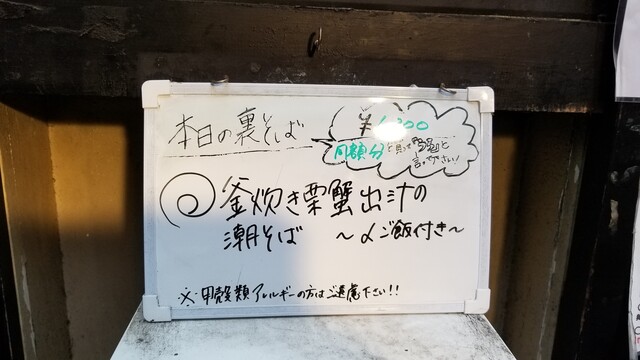 本日の裏そば
同額分と買って
言って下さい!
釜炊き栗蟹出汁の
潮そば 〜〆ご飯付き〜
※甲殻類アレルギーの方はご遠慮下さい!!